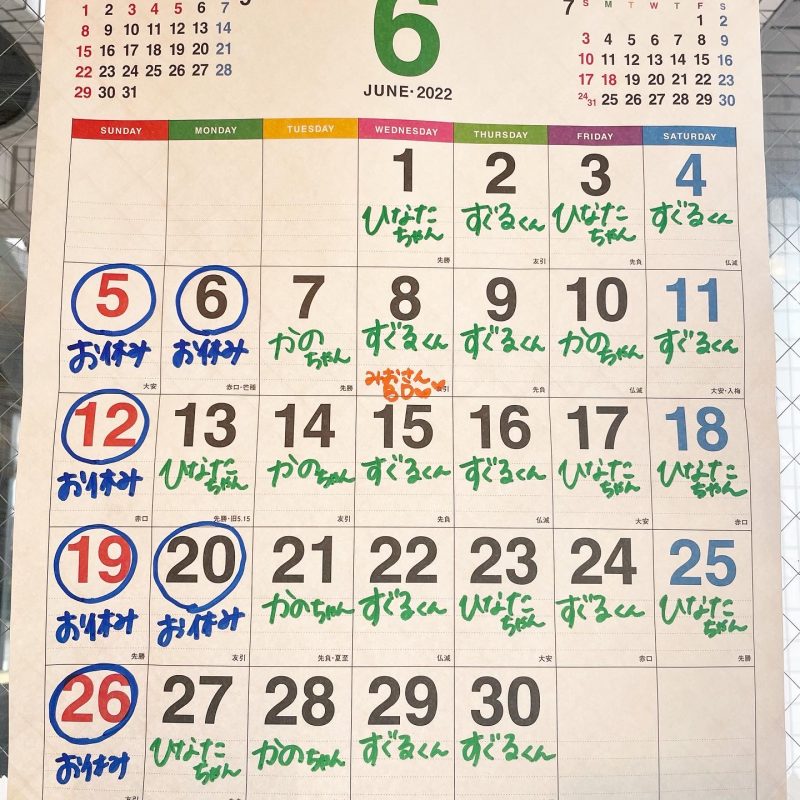 1 2 3 4 5 6 7
8 9 10 11 12 13 14
15 16 17 18 19 20 21
22 23 24 25 26 27 28
29 30 31
6
JUNE・2022
7
S M T W T F S
1 2
3 4 5 6 7 8 9
10 11 12 13 14 15 16
17 18 19 20 21 22 23
24/31 25 26 27 28 29 30
SUNDAY MONDAY TUESDAY WEDNESDAY THURSDAY FRIDAY SATURDAY
1 2 3 4
ひなた すぐるくん ひなた すぐるくん
ちゃん ちゃん
先勝 友引 先負 仏滅
5 6 7 8 9 10 11
お休み お休み かの すぐるくん すぐるくん かの すぐるくん
ちゃん ちゃん
みおさん
大安 赤口・芒種 先勝 友引 先負 仏滅 大安・入梅
12 13 14 15 16 17 18
お休み ひなた かのちゃん すぐるくん すぐるくん ひなた ひなた
ちゃん ちゃん ちゃん
赤口 先勝・旧5.15 友引 先負 仏滅 大安 赤口
19 20 21 22 23 24 25
お休み お休み かのちゃん すぐるくん ひなた すぐるくん ひなた
ちゃん ちゃん
先勝 友引 先負・夏至 仏滅 大安 赤口 先勝
26 27 28 29 30
お休み ひなた かのちゃん すぐるくん すぐるくん
ちゃん
友引